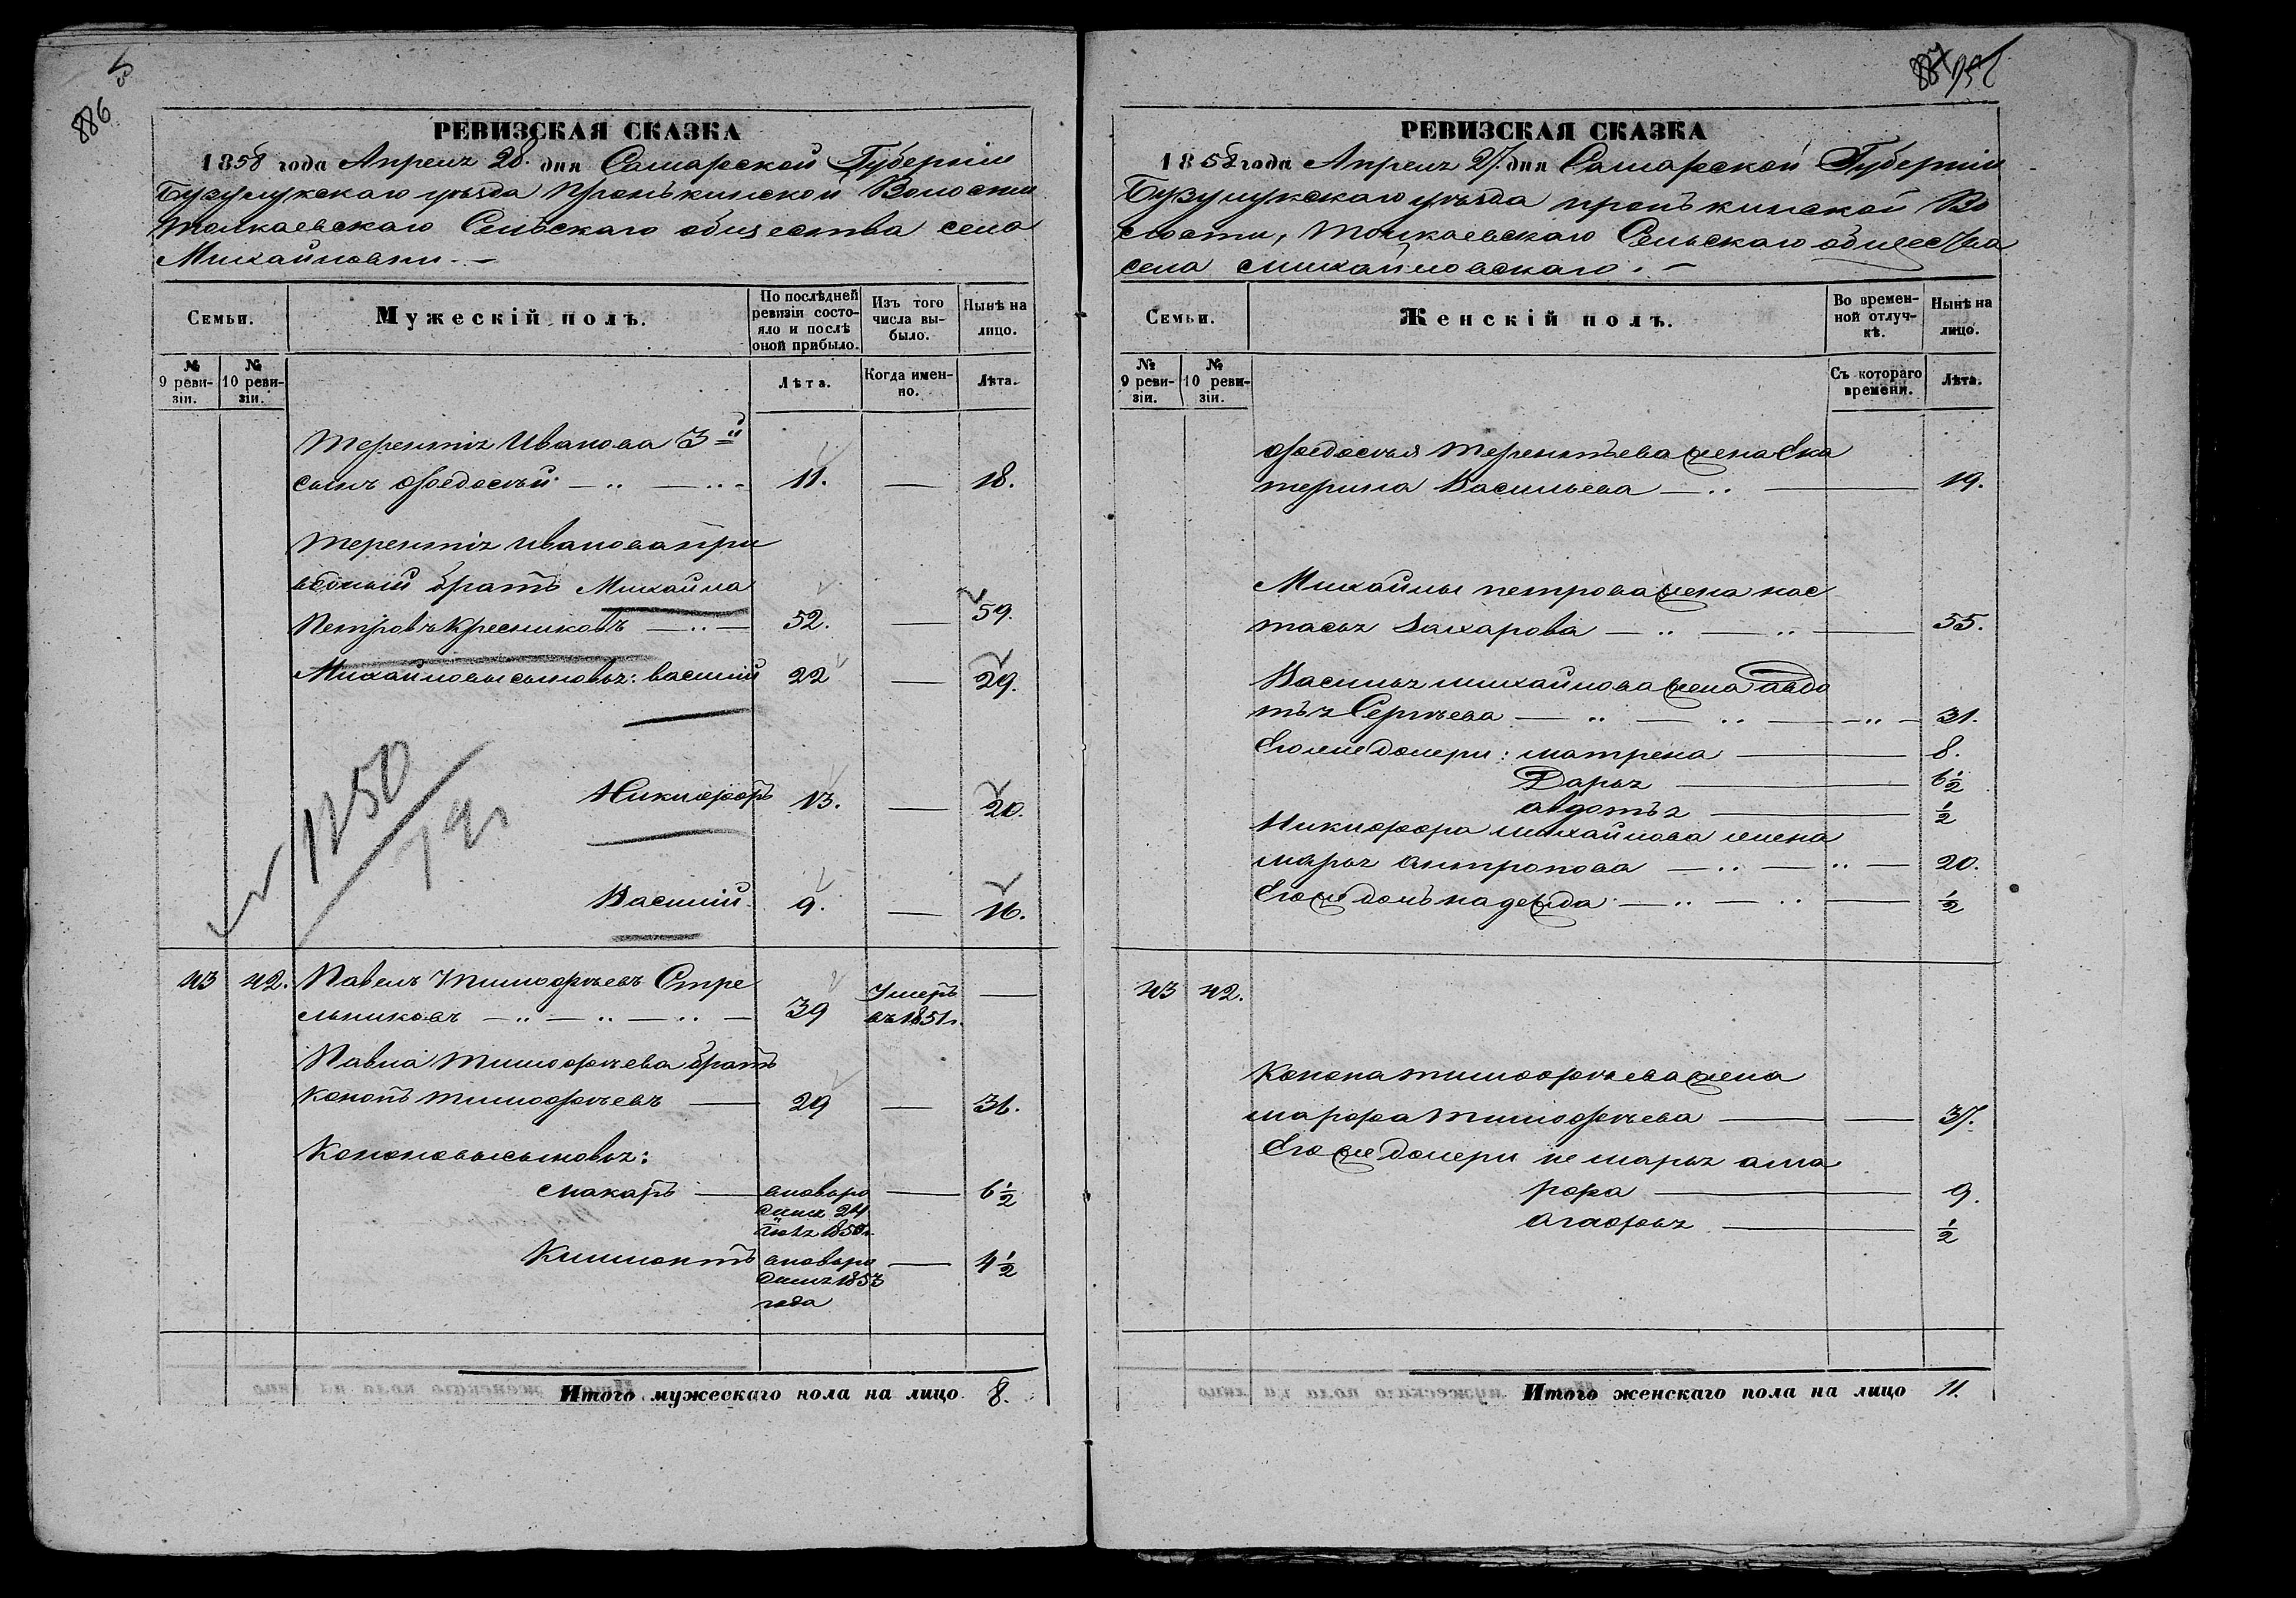 886
РЕВИЗСКАЯ СКАЗКА
1858 года Апреля 28. дня Самарской Губерніи
Бузулукскаго уѣзда Пронькинской Волости
Толкаевскаго Сельскаго общества села
Михайловки. –
Семьи.
Мужескій полъ.
По послѣдней ревизіи состояло и послѣ оной прибыло.
Изъ того числа выбыло.
Нынѣ на лицо.
№ 9 ревизіи.
№ 10 ревизіи.
Лѣта.
Когда именно.
Лѣта.
Терентія Иванова 3й
сынъ Ѳедосѣй 11. — 18.
Терентія Иванова при
водный братъ Михайла
Петровъ Кресниковъ 52. — 59.
Михайловы сыновья: василий 22 — 29.
Никифоръ 13. — 20.
1250
Василий 9. — 16.
43 42. Павелъ Тимофѣевъ Стре
льниковъ 39 Умеръ въ 1851 г. —
Павла Тимофѣева братъ
Кононъ Тимофѣевъ 29 — 36.
Кононовы сыновья:
Макаръ вновьро дился 24 1850 г. — 6½
Климонтъ вновьро дился 1853 года — 4½
Итого мужескаго пола на лицо 8.
887
РЕВИЗСКАЯ СКАЗКА
1858 года Апреля 27. дня Самарской Губерніи
Бузулукскаго уѣзда пронькинской Во
лости, Толкаевскаго Сельскаго общества
села михайловскаго. –
Семьи.
Женскій полъ.
Во временной отлучкѣ.
Нынѣ на лицо.
№ 9 ревизіи.
№ 10 ревизіи.
Съ котораго времени.
Лѣта.
Ѳедосѣя Терентьева жена Ека
терина Васильева 19.
Михайлы петрова жена нас
тасья Захарова 55.
Василья михайлова жена авдо
тья Сергѣева 31.
Егоже дочери: матрена 8.
Дарья 6½
авдотья ½
Никифора михайлова жена
марья антропова 20.
Егоже дочь надежда ½
43 42.
Конона тимофѣева жена
марфа Тимофѣева 37.
Егоже дочери не марья а ма
рфа 9.
Агафья ½
Итого женскаго пола на лицо 11.